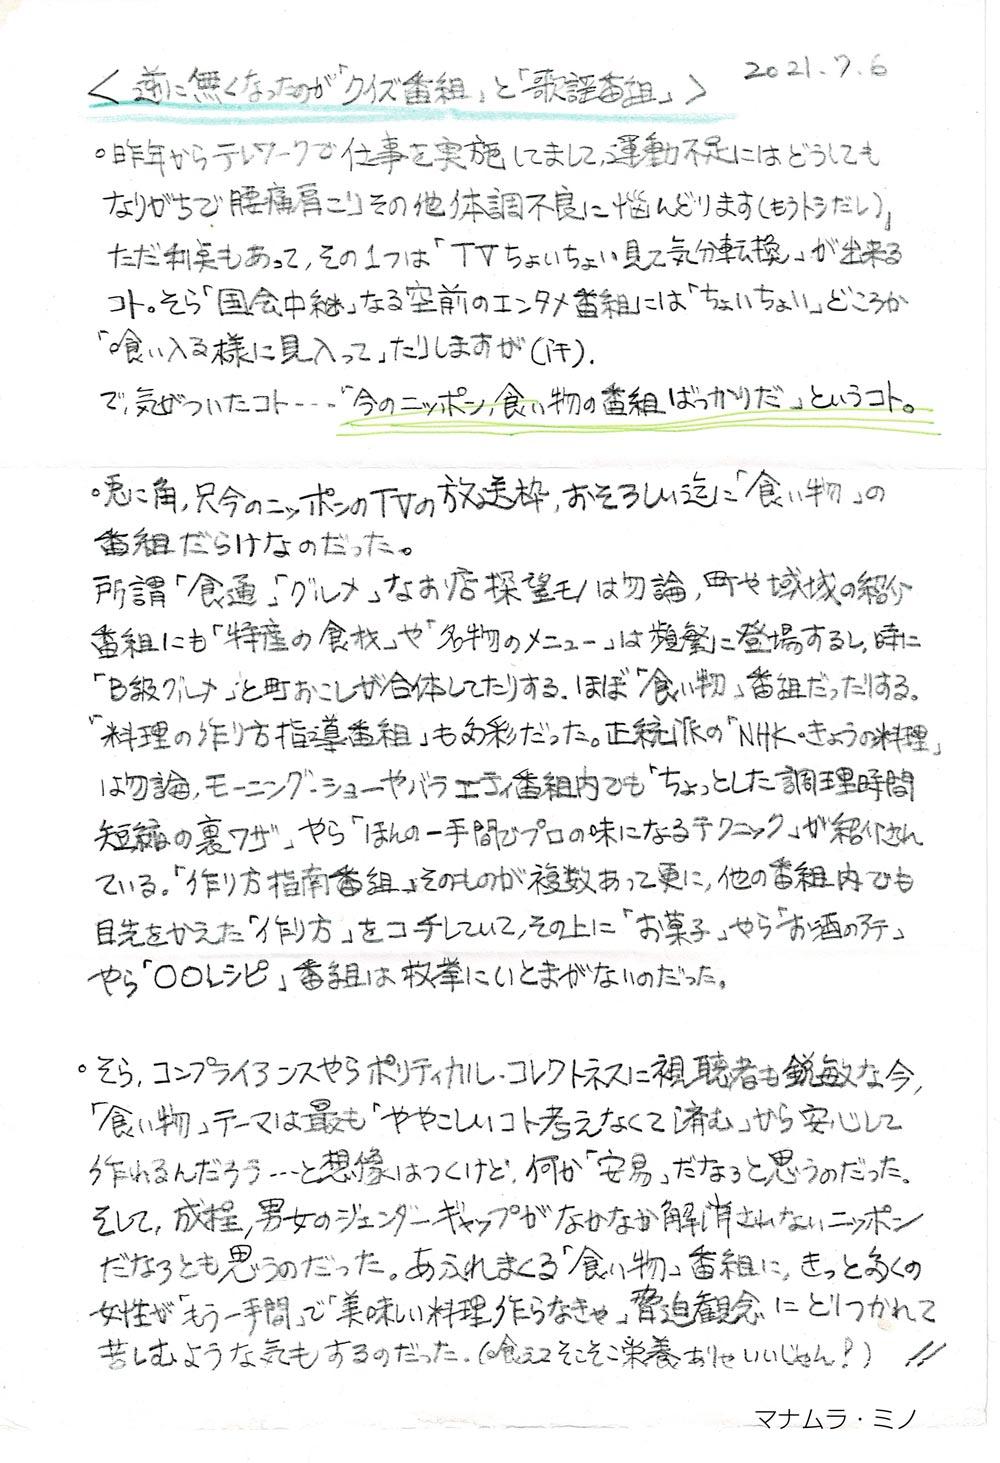 2021.7.6
＜逆に無くなったのが「クイズ番組」と「歌謡番組」＞
○昨年からテレワークで仕事を実施してまして、運動不足にはどうしても
なりがちで腰痛肩こりその他体調不良に悩んどります(もうトシだし)。
ただ利点もあって、その1つは「TVちょいちょい見て気分転換」が出来る
コト。そら「国会中継」なる空前のエンタメ番組には「ちょいちょい」どころか
「喰い入る様に見入って」たりしますが(汗).
で、気がついたコト----「今のニッポン、食い物の番組ばっかりだ」というコト。
○兎に角,只今のニッポンのTVの放送枠,おそろしい迄に「食い物」の
番組だらけなのだった。
所謂「食通」「グルメ」なお店探望モノは勿論,町や域域の紹介
番組にも「特産の食材」や「名物のメニュー」は頻繁に登場するし,時に
「B級グルメ」と町おこしが合体してたりする.ほぼ「食い物」番組だったりする。
「料理の作り方指導番組」も多彩だった。正統派の「NHK・きょうの料理」
は勿論,モーニング・ショーやバラエティ番組内でも「ちょっとした調理時間
短縮の裏ワザ」やら「ほんの一手間でプロの味になるテクニック」が紹介され
ている。「作り方指南番組」そのものが複数あって更に,他の番組内でも
目先をかえた「作り方」をコチしていて,その上に「お菓子」やら「お酒のアテ」
やら「○○レシピ」番組は枚挙にいとまがないのだった。
○そら,コンプライアンスやらポリティカル・コレクトネスに視聴者も鋭敏な今,
「食い物」テーマは最も「ややこしいコト考えなくて済む」から安心して
作れるんだろう---と想像はつくけど,何か「安易」だなぁと思うのだった。
そして,成程,男女のジェンダーギャップがなかなか解消されないニッポン
だなぁとも思うのだった。あふれまくる「食い物」番組に,きっと多くの
女性が「もう一手間」で「美味しい料理作らなきゃ」脅迫観念にとりつかれて
苦しむような気もするのだった.(喰えてそこそこ栄養ありゃいいじゃん!) //
マナムラ・ミノ